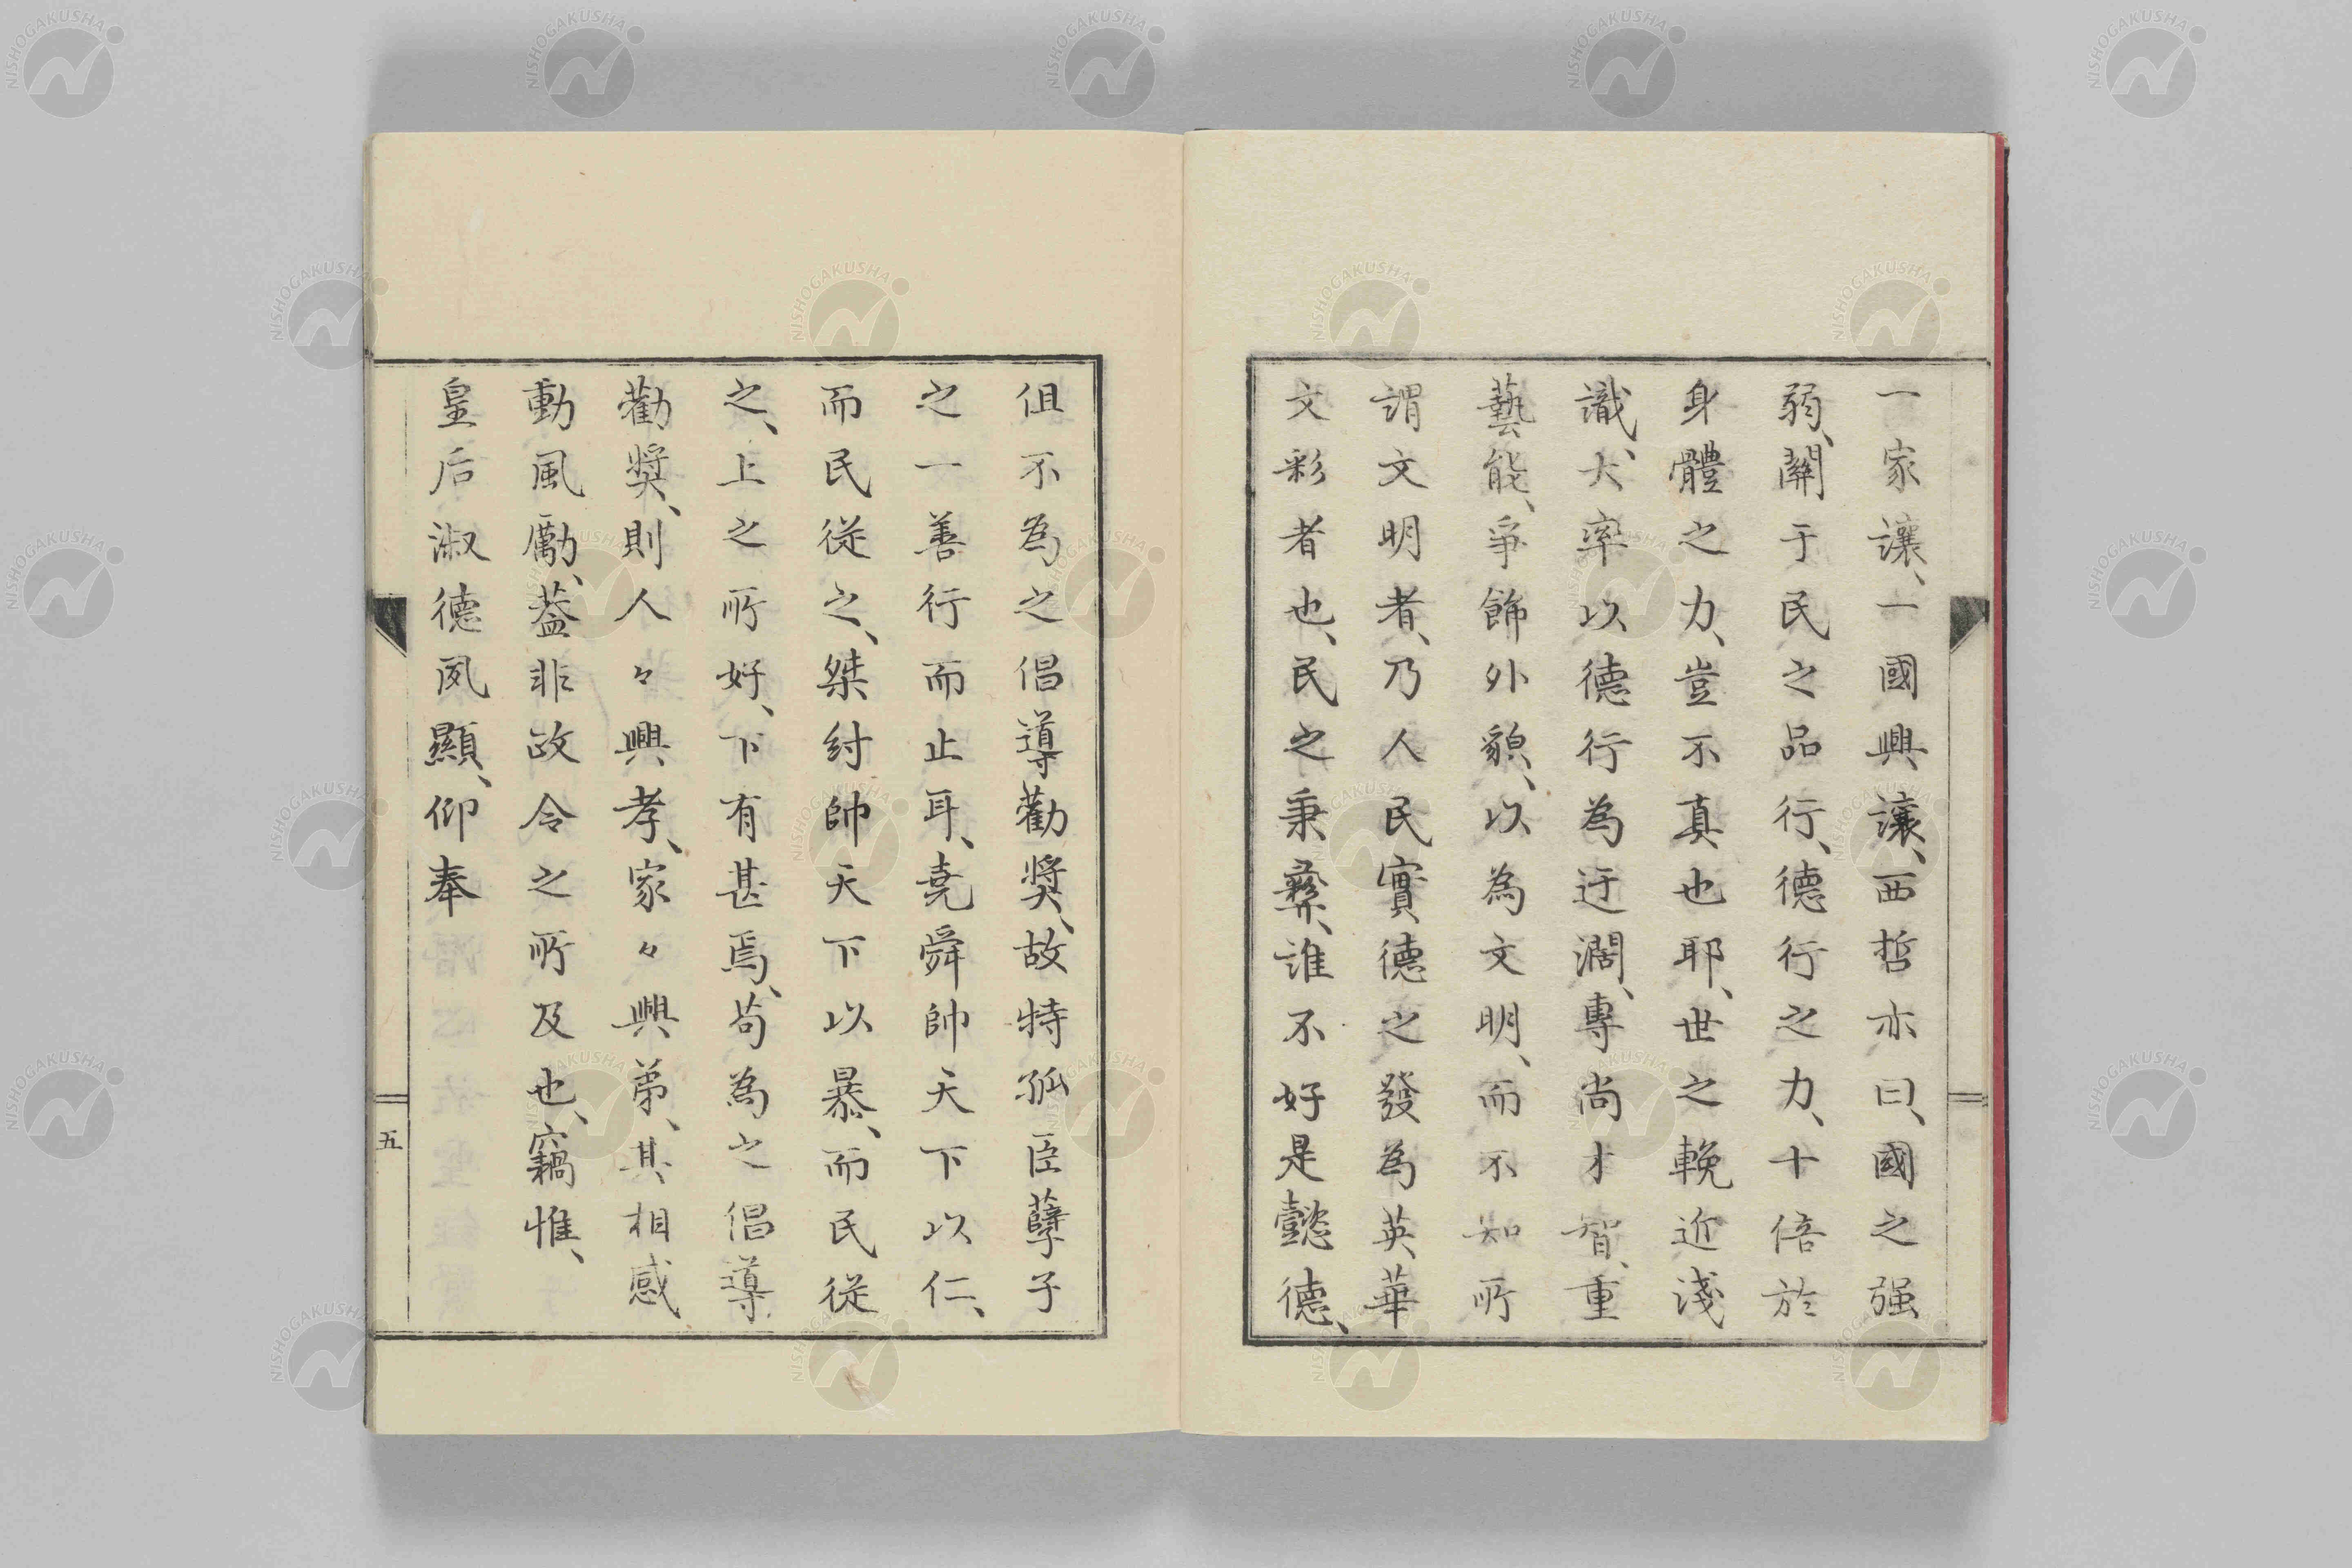 一家讓、一國興讓、西哲亦曰、國之强
弱、關于民之品行、德行之力、十倍於
身體之力、豈不真也耶、世之輓近淺
識、大率以德行為迂濶、專尚才智、重
藝能、爭飾外貌、以為文明、而不知所
謂文明者、乃人民實德之發為英華
文彩者也、民之秉彝、誰不好是懿德、
但不為之倡導勸奬、故特孤臣孽子
之一善行而止耳、堯舜帥天下以仁、
而民從之、桀紂帥天下以暴、而民從
之、上之所好、下有甚焉、苟為之倡導
勸奬、則人々興孝、家々興弟、其相感
動風勵、蓋非政令之所及也、竊惟、
皇后淑德夙顯、仰奉
五
NISHOGAKUSHA